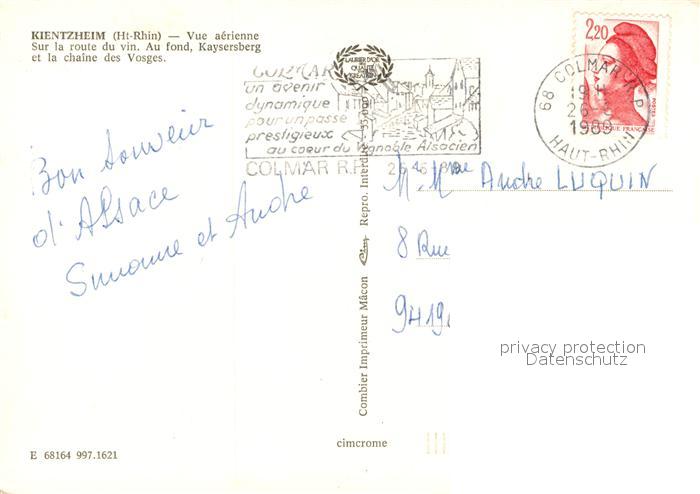 KIENTZHEIM (Ht-Rhin) — Vue aérienne
Sur la route du vin. Au fond, Kaysersberg
et la chaîne des Vosges.
LAURIER D'OR
QUALITÉ
CRÉATION
COLMAR
un avenir
dynamique
pour un passé
prestigieux
au coeur du Vignoble Alsacien
COLMAR R.P.
2,20
68 COLMAR R.P
19 H
26
1989
HAUT-RHIN
POSTES
RÉPUBLIQUE FRANÇAISE
Bon Souvenir
d'Alsace
Simone et André
M. Mme André LUQUIN
8 Rue
9419
Combier Imprimeur Mâcon Cim Repro. Interdite
privacy protection
Datenschutz
cimcrome
E 68164 997.1621